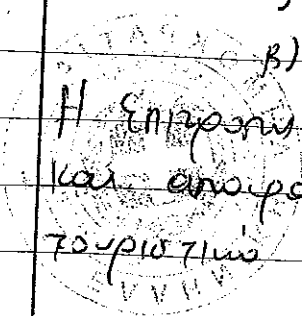 β)
Η Επιτροπή
και αποφα
τουριστικό